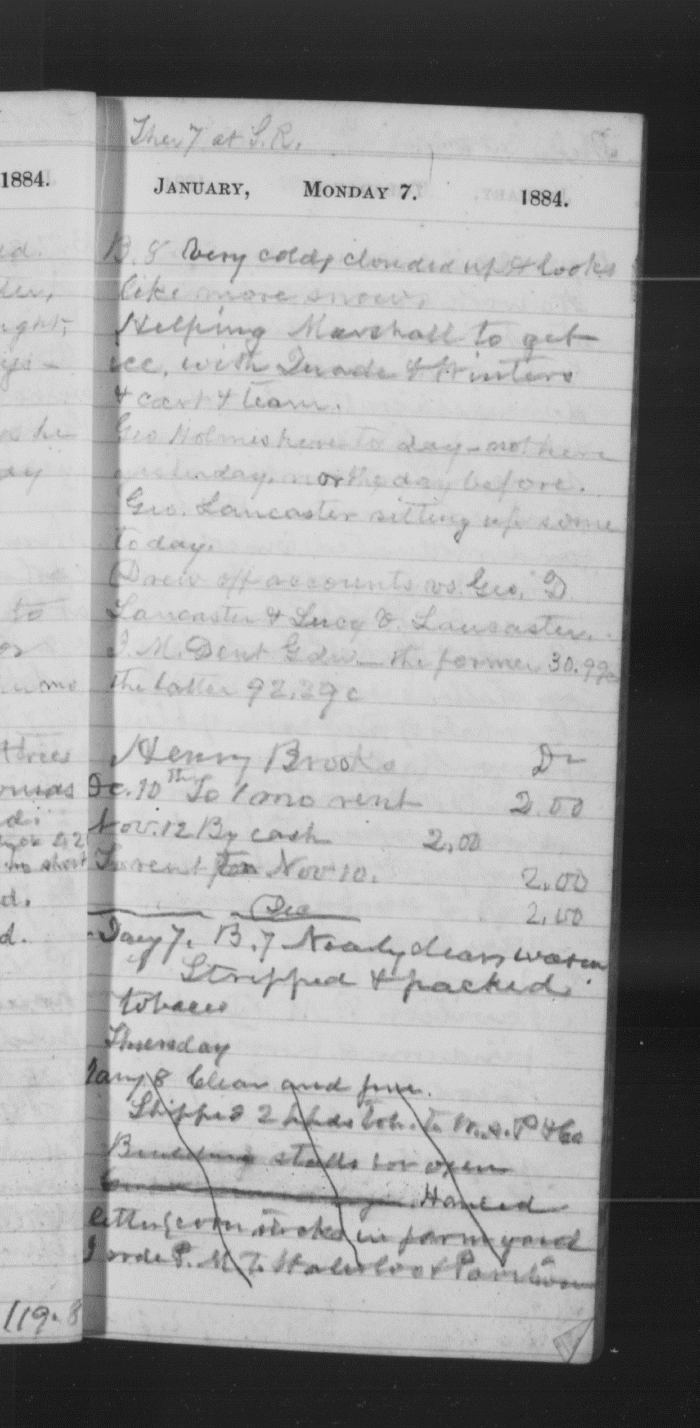 1884.
ght,
to
d.
d.
119.8
Ther 7 at S.R.
JANUARY, MONDAY 7. 1884.
B. 8 Very cold, clouded up & looks
like more snow.
Helping Marshall to get
ice, with Quade & Winters
& cart & team.
Geo Holmes here to day - not here
yesterday, nor the day before.
Geo. Lancaster sitting up some
to day.
Drew off accounts vs. Geo. D.
Lancaster & Lucy Lancaster.
J. M. Dent Gdn. the former 30.99c
the latter 92.29c
Henry Brooks Dr
Dc. 10th To 1 mo rent 2.00
Nov. 12 By cash 2.00
To rent for Nov 10. 2.00
Dec 2.00
Jany 7. B. 7 Nearly clear, warm
Stripped & packed
tobacco
Jany 8 Clear and fine.
Shipped 2 hhds tob. to & Co
Building stalls for oxen
Hauled
litter, corn stocks in farm yard
I rode P. M. To